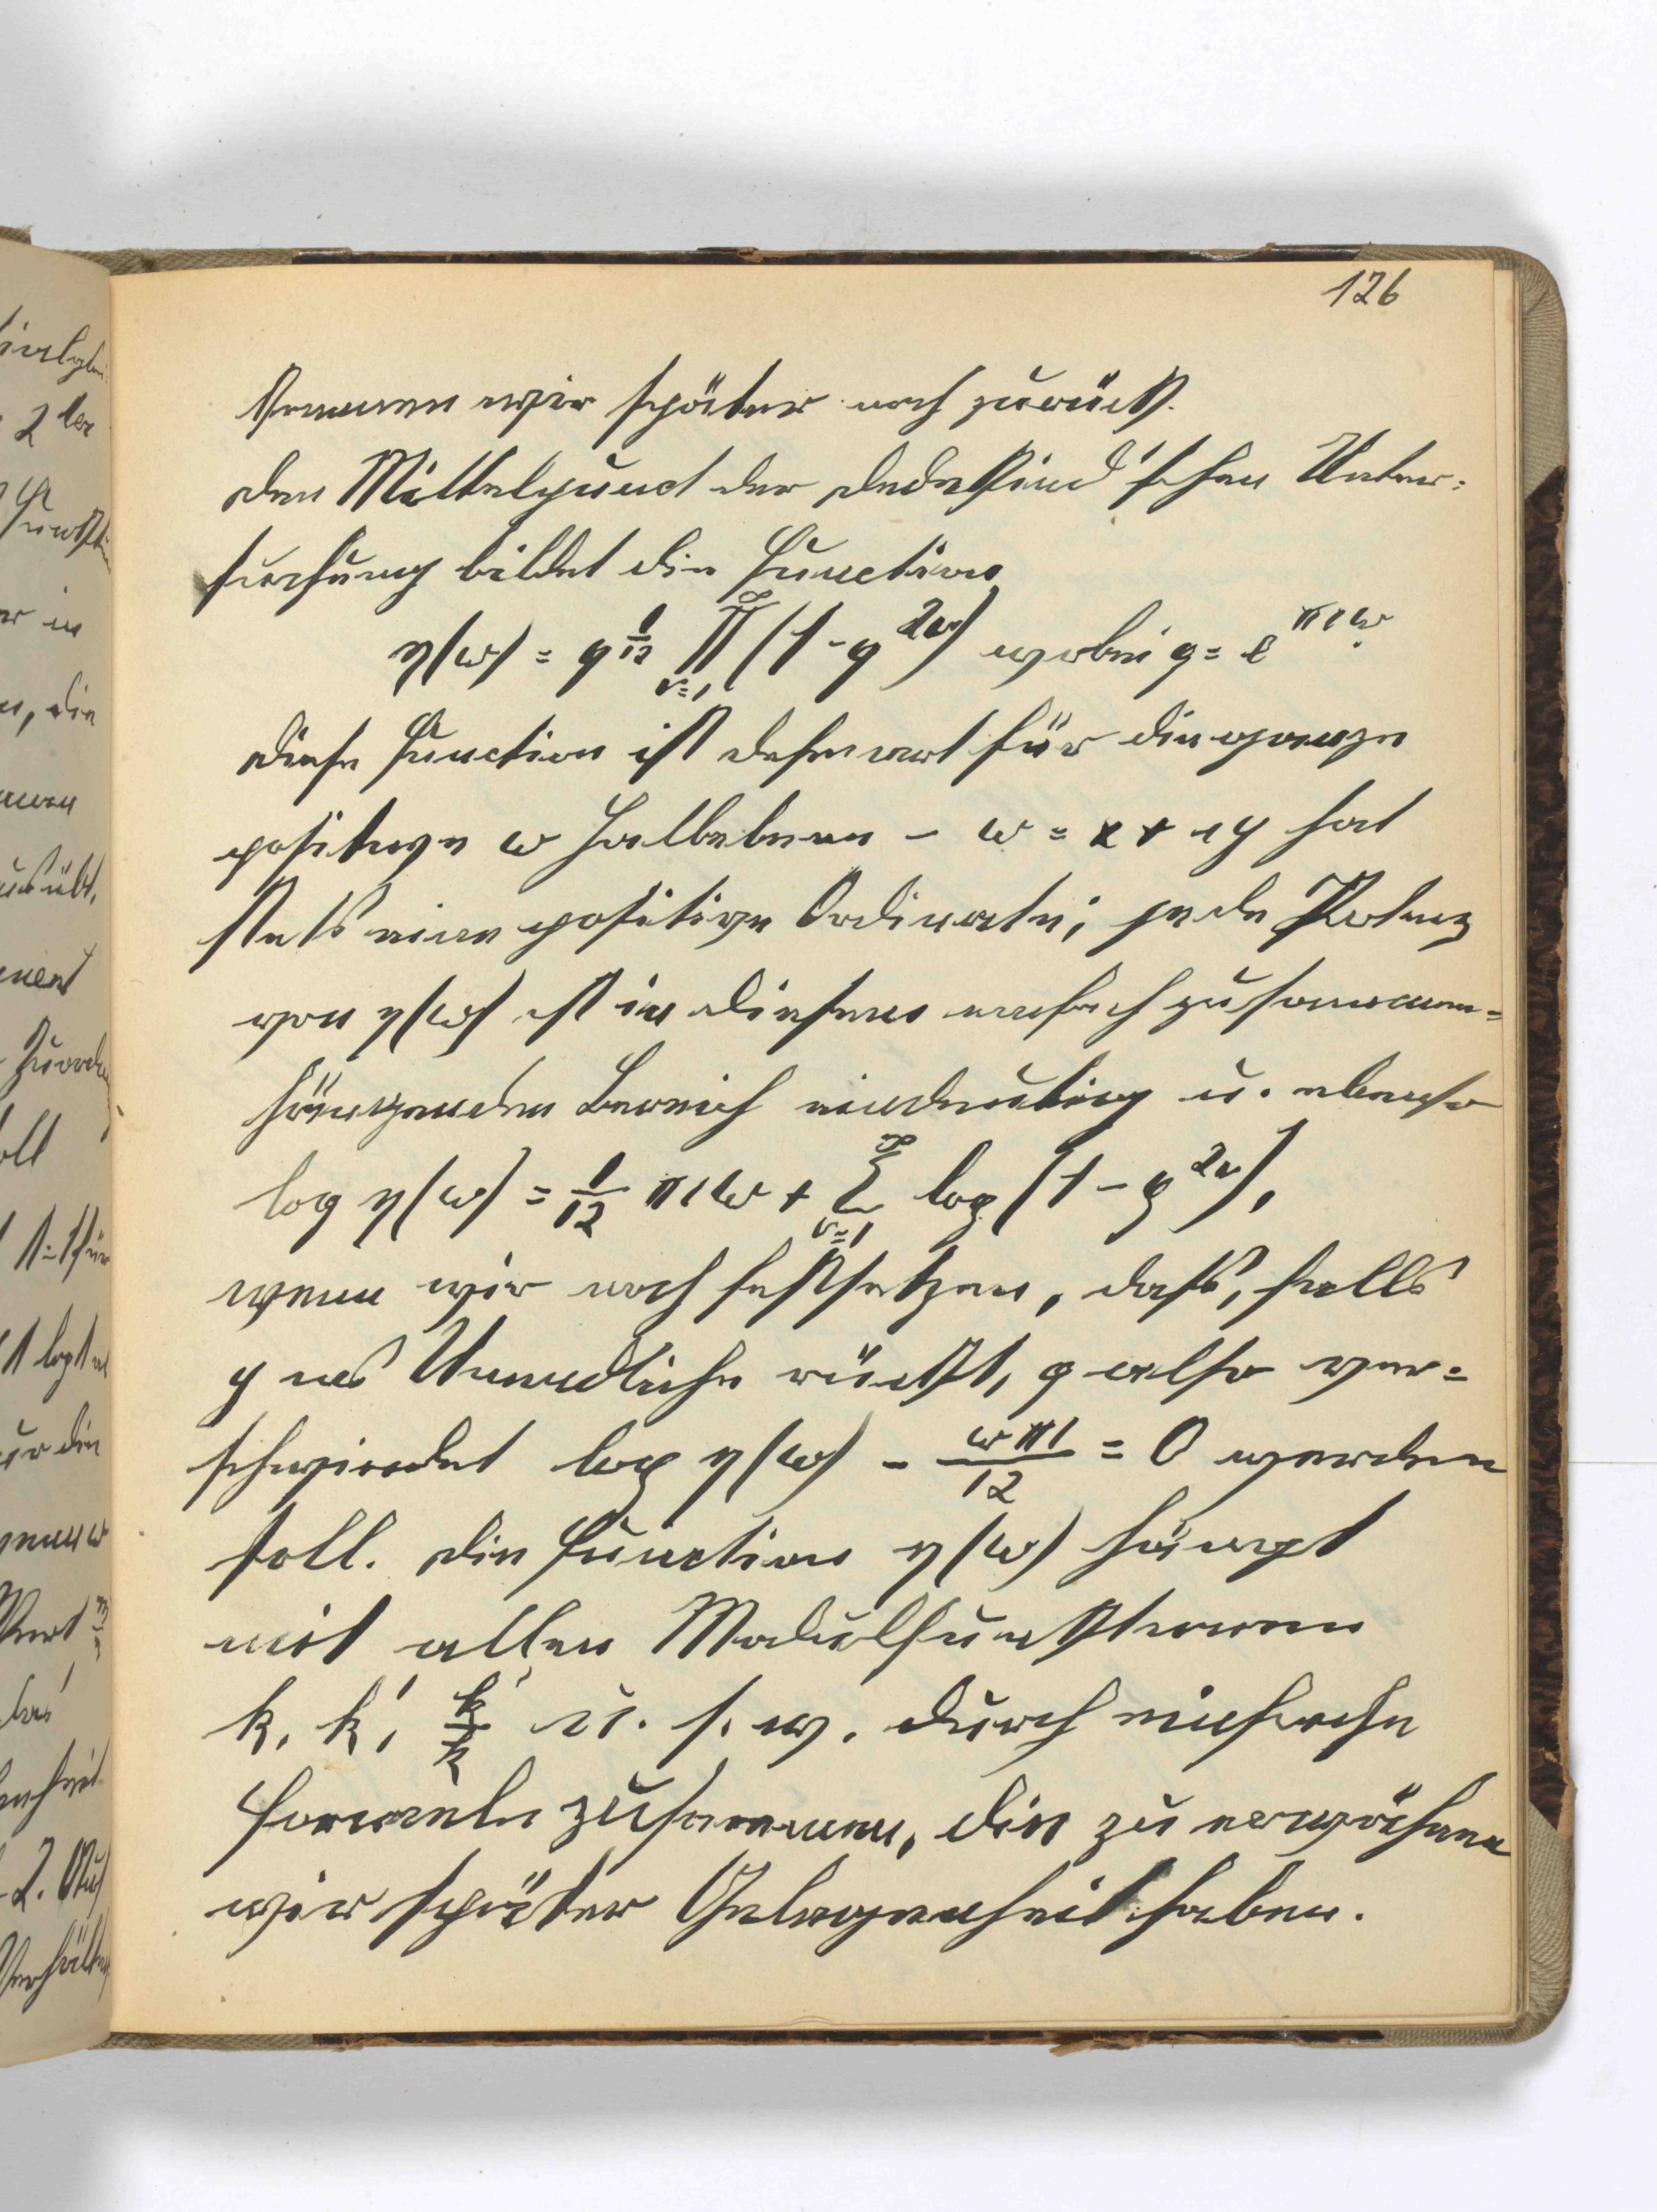 126
kommen wir später noch zurück.
Den Mittelpunct der Dedekind'schen Unter=
suchung bildet die Function
η(ω) = q^{1/12} ∏_{ν=1}^{∞} (1 - q^{2ν}) wobei q = e^{πiω}.
Diese Function ist definiert für die ganze
positive ω Halbebene - ω = x + iy hat
stets eine positive Ordinate; jede Potenz
von η(ω) ist in diesem einfach zusammen=
hängenden Bereich eindeutig u. ebenso
log η(ω) = 1/12 πiω + ∑_{ν=1}^{∞} log (1 - q^{2ν}),
wenn wir noch festsetzen, daß, falls
y ins Unendliche rückt, q also ver=
schwindet log η(ω) - ωπi/12 = 0 werden
soll. Die Function η(ω) hängt
mit allen Modulfunktionen
k, k', k'/k u. s. w. durch einfache
Formeln zusammen, die zu erwähnen
wir später Gelegenheit haben.